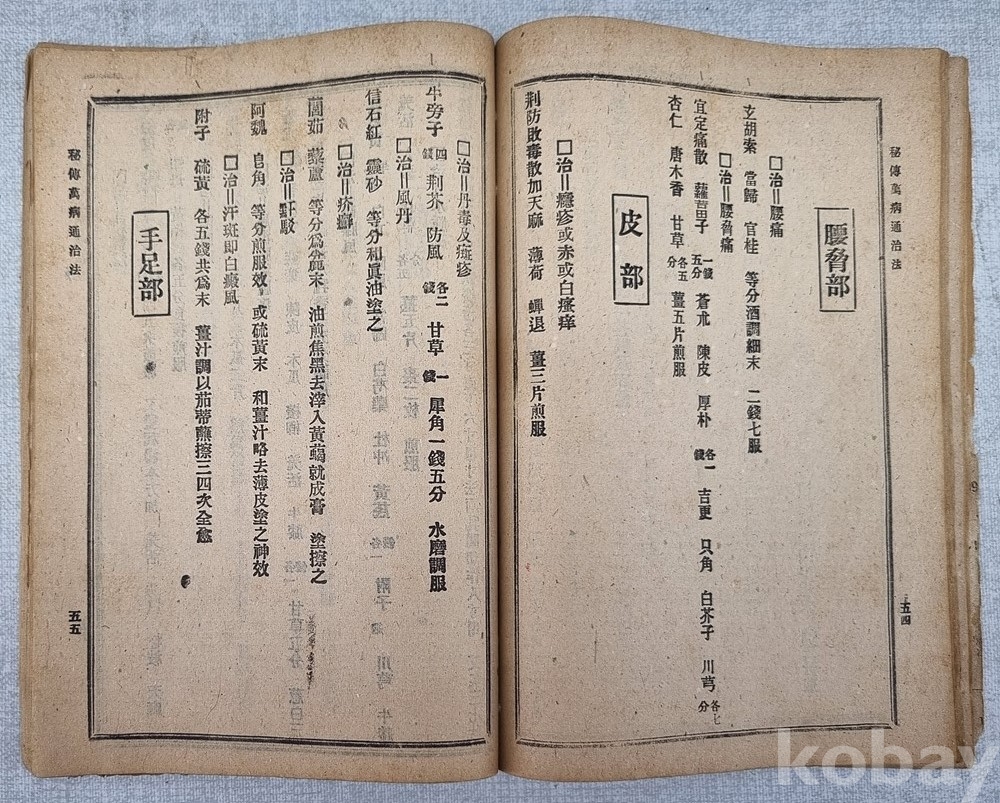 秘傳萬病通治法
五四
腰脅部
□治＝腰痛
玄胡索 當歸 官桂 等分酒調細末 二錢七服
□治＝腰脅痛
宜定痛散 蘿葍子 一錢五分 蒼朮 陳皮 厚朴 各一錢 吉更 只角 白芥子 川芎 各七分
杏仁 唐木香 甘草 各五分 薑五片煎服
皮部
□治＝癮疹或赤或白瘙痒
荆防敗毒散加天麻 薄荷 蟬退 薑三片煎服
□治＝丹毒及斑疹
牛旁子 四錢 荆芥 防風 各二錢 甘草 一錢 犀角一錢五分 水磨調服
□治＝風丹
信石紅 靈砂 等分和眞油塗之
□治＝疥癬
藺茹 藜蘆 等分爲麁末 油煎焦黑去滓入黃蝎就成膏 塗擦之
□治＝
阿魏 皂角 等分煎服效 或硫黃末 和薑汁略去薄皮塗之神效
□治＝汗斑即白癜風
附子 硫黃 各五錢共爲末 薑汁調以茄蒂蘸擦三四次全愈
手足部
秘傳萬病通治法
五五
kobay